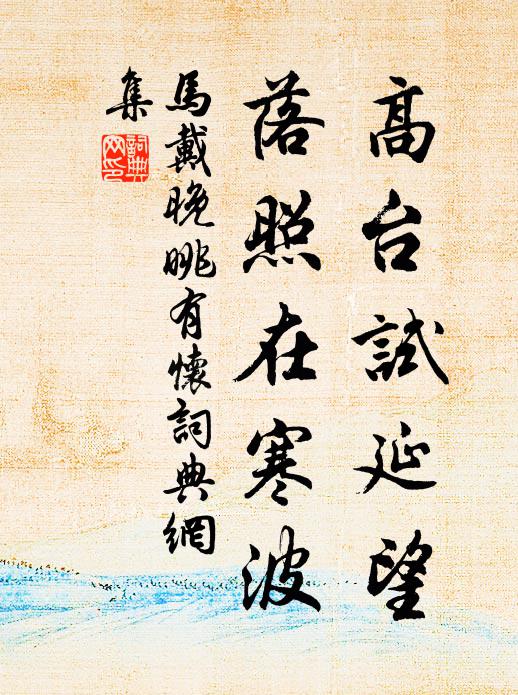 高台試延望
落照在寒波
馬戴晚眺有懷詞典網
集
詞典
网印